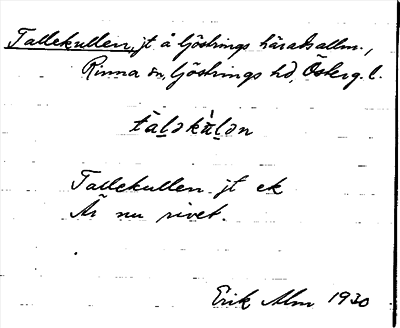 Tallekullen, jt å Göstrings häradsallm.,
Rinna sn, Göstrings hd, Österg. l.
tàləkùlən
Tallekullen jt ek
Är nu rivet.
Erik Alm 1930